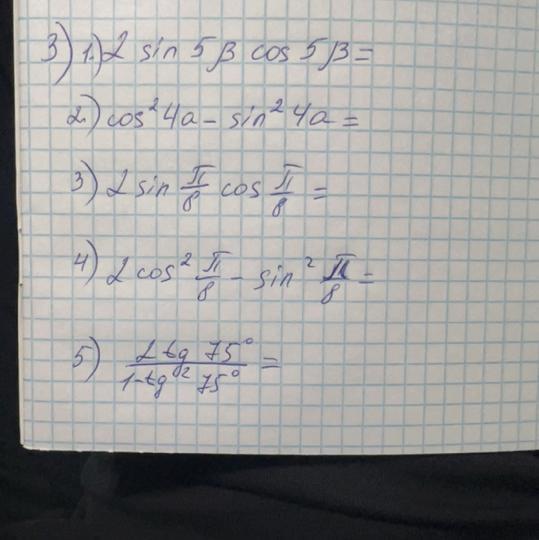 3) 1.) 2 sin 5β cos 5β =
2.) cos² 4a - sin² 4a =
3) 2 sin π/8 cos π/8 =
4) 2 cos² π/8 - sin² π/8 =
5) 2 tg 75° / 1-tg² 75° =